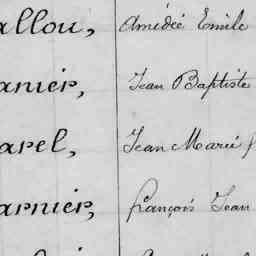 allou, Amédée Emile
anier, Jean Baptiste
arel, Jean Marie
arnier, François Jean